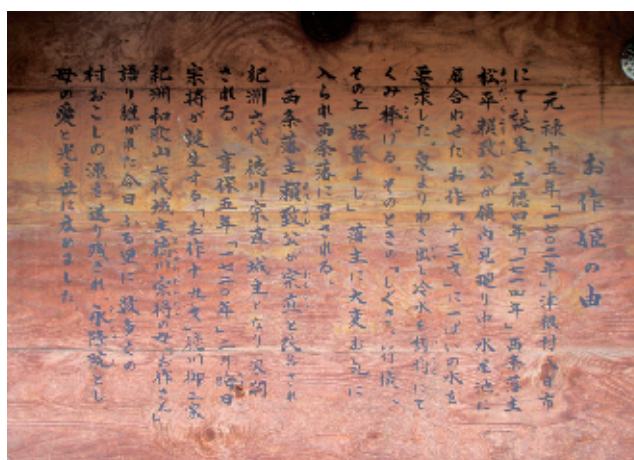 お作姫の由
元禄十五年「一七〇二年」津根村八日市
にて誕生、正徳四年「一七一四年」西条藩主
松平頼致公が領内見廻り中 水をに
居合わせたお作「十三才」に一ぱいの水を
要求した。泉よりわき出し冷水を 杓にて
くみ捧げる。そのときの「しぐさ、行儀、
その上 器量よし」藩主に大変お気に
入られ西条藩に召される。
西条藩主頼致公が宗直と改名され
紀州六代 徳川宗直 城主となり 召
される。 享保五年「一七二〇年」二月 日
宗将が誕生する「お作十九才」徳川御三家
紀洲和歌山七代城主徳川宗将の母「お作さん」
語り継がれた今日 に 数多くの
村おこしの源を送り残され 永 とし
母の愛と光を世に広めました